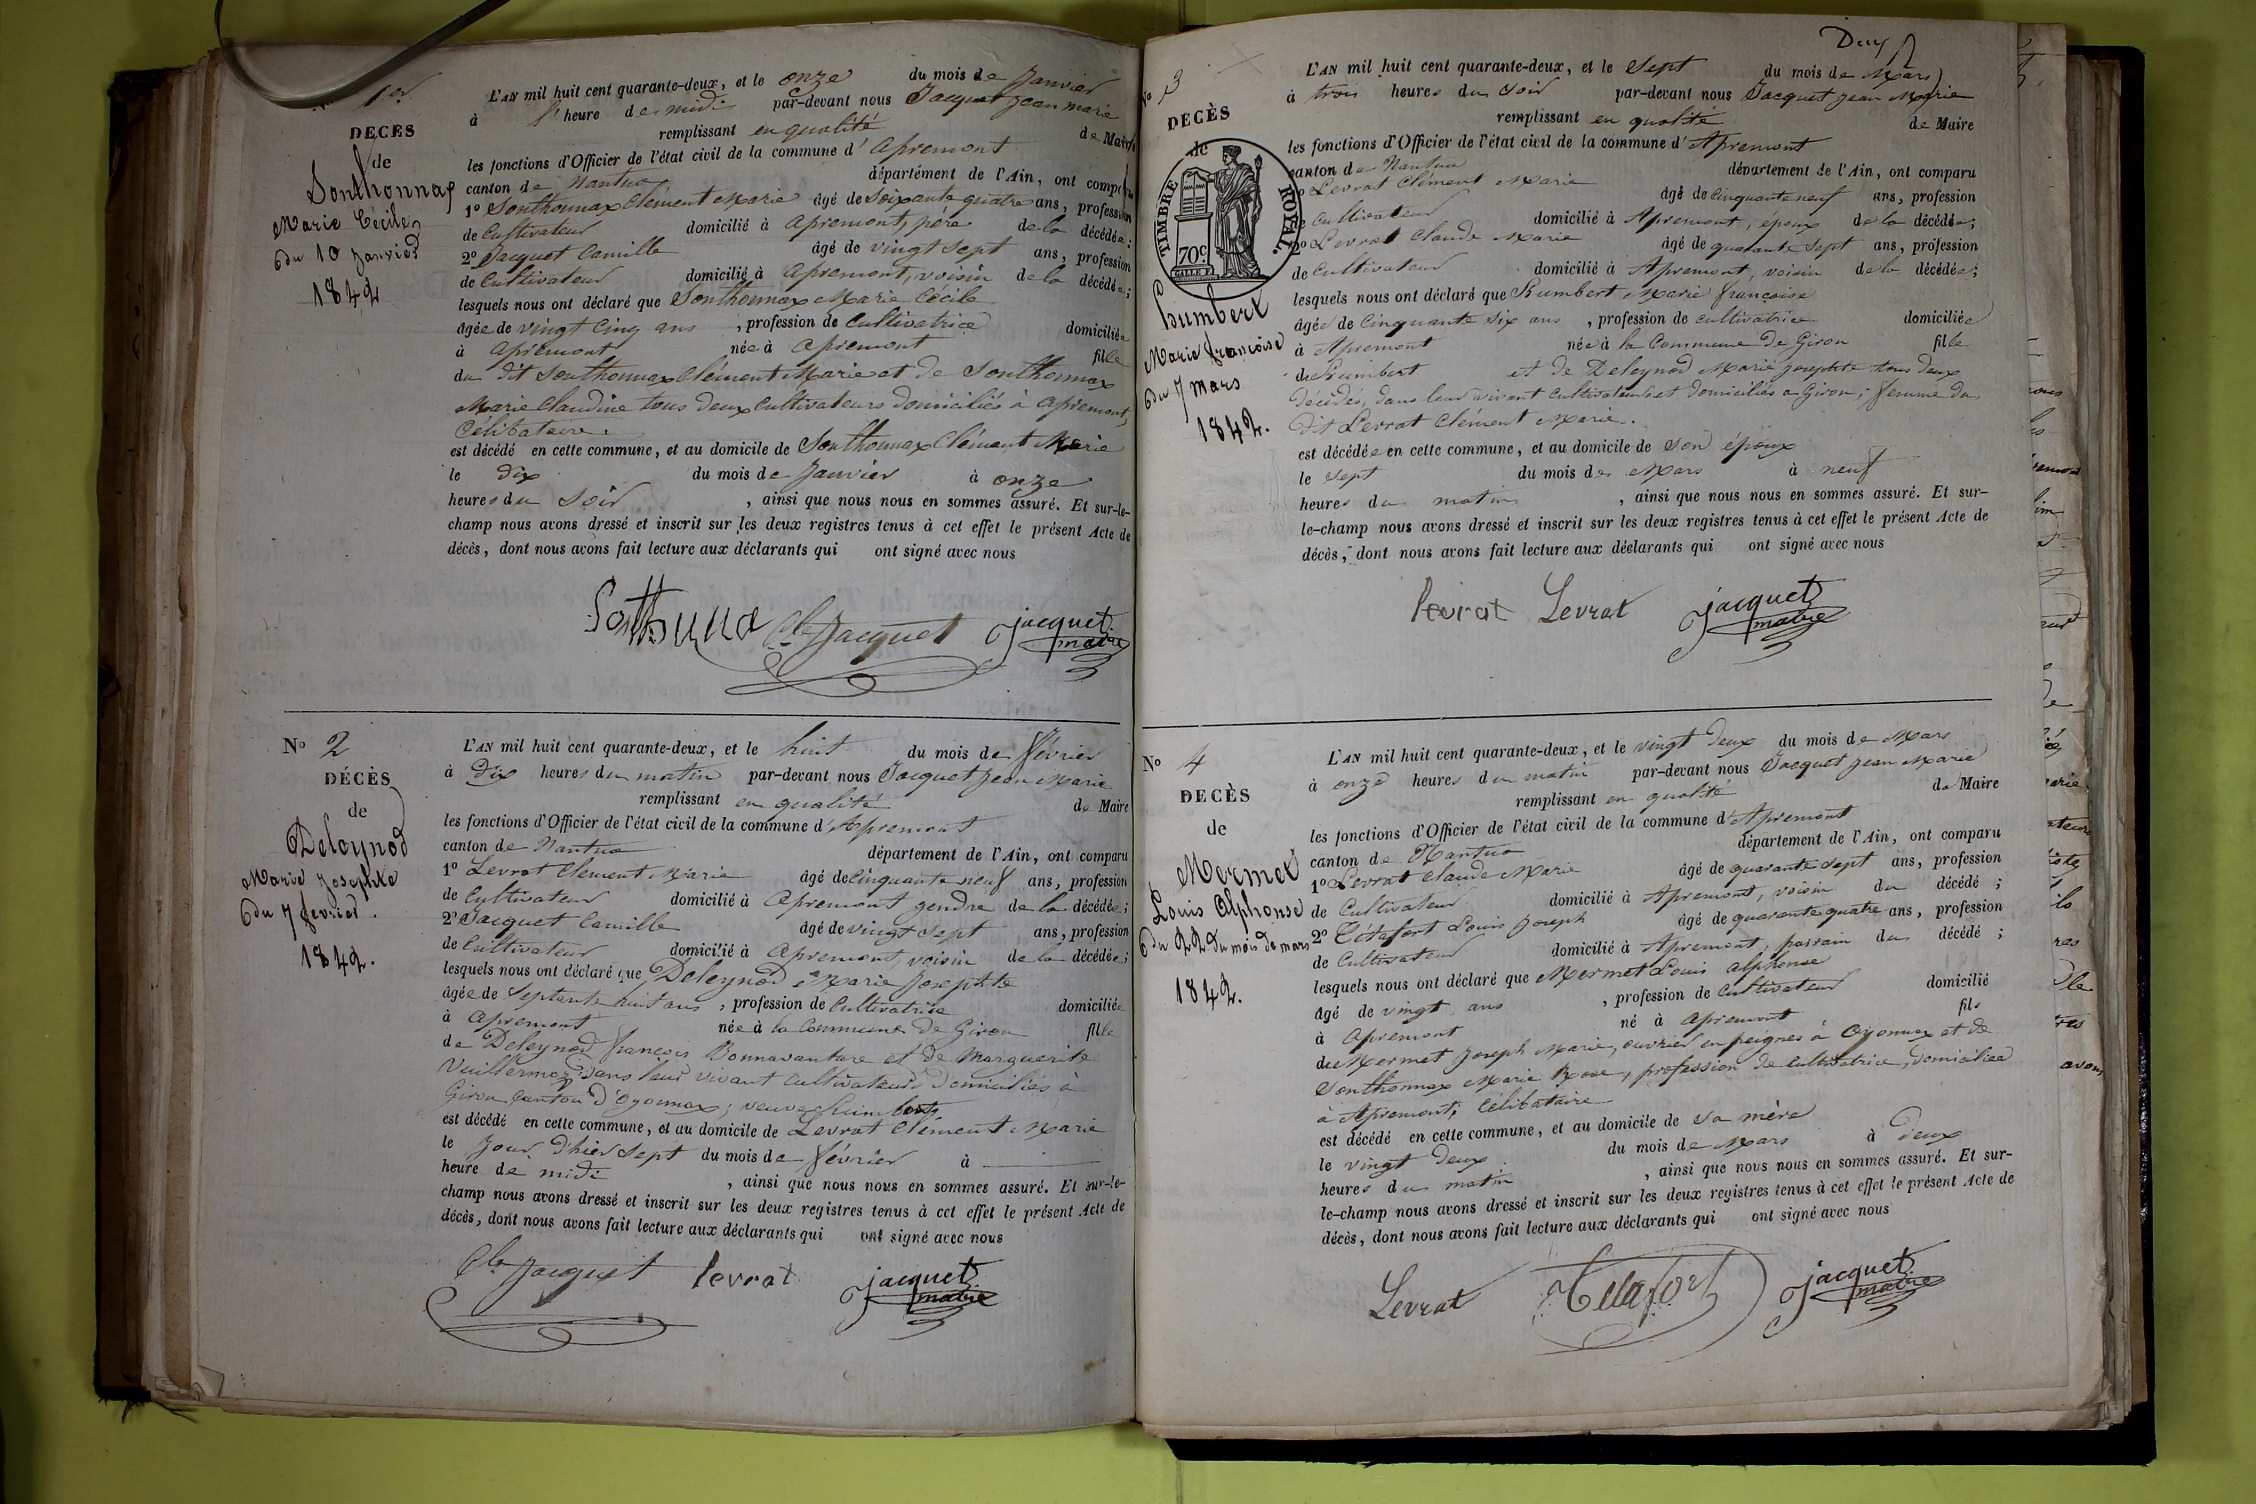 1er
DECES
de
Sonthonnax
Marie Cécile
du 10 Janvier
1842
L'AN mil huit cent quarante-deux, et le onze du mois de Janvier
à l' heure de midi par-devant nous Jacquet Jean marie
remplissant en qualité de Maire
les fonctions d'Officier de l'état civil de la commune d' Apremont
canton de Nantua département de l'Ain, ont comparu
1º Sonthonnax Clément Marie âgé de Soixante quatre ans, profession
de Cultivateur domicilié à Apremont, père de la décédée;
2º Jacquet Camille âgé de vingt sept ans, profession
de Cultivateur domicilié à Apremont, voisin de la décédée;
lesquels nous ont déclaré que Sonthonnax Marie Cécile
âgée de vingt Cinq ans , profession de Cultivatrice domiciliée
à Apremont née à Apremont fille
du dit Sonthonnax Clément Marie et de Sonthonnax
Marie Claudine tous deux Cultivateurs domiciliés à Apremont,
Célibataire.
est décédé en cette commune, et au domicile de Sonthonnax Clément Marie
le dix du mois de Janvier à onze
heures du soir , ainsi que nous nous en sommes assuré. Et sur-le-
champ nous avons dressé et inscrit sur les deux registres tenus à cet effet le présent Acte de
décès, dont nous avons fait lecture aux déclarants qui ont signé avec nous
Cle Jacquet jacquet
maire
No 2
DÉCÈS
de
Deleynod
Marie Josephte
du 7 fevrier.
1842.
L'AN mil huit cent quarante-deux, et le huit du mois de février
à Dix heures du matin par-devant nous Jacquet Jean Marie
remplissant en qualité de Maire
les fonctions d'Officier de l'état civil de la commune d'Apremont
canton de Nantua département de l'Ain, ont comparu
1º Levrat Clément Marie âgé de cinquante neuf ans, profession
de Cultivateur domicilié à Apremont gendre de la décédée;
2º Jacquet Camille âgé de vingt sept ans, profession
de Cultivateur domicilié à Apremont, voisin de la décédée;
lesquels nous ont déclaré que Deleynod Marie Josephte
âgée de Septante huit ans , profession de Cultivatrice domiciliée
à Apremont née à la Commune de Giron fille
de Deleynod françois Bonnavanture et de Marguerite
Vuillermoz dans leur vivant Cultivateurs domiciliés à
Giron Canton d'Oyonnax; veuve humbert
est décédé en cette commune, et au domicile de Levrat Clément Marie
le Jour d'hier sept du mois de février à
heure de midi , ainsi que nous nous en sommes assuré. Et sur-le-
champ nous avons dressé et inscrit sur les deux registres tenus à cet effet le présent Acte de
décès, dont nous avons fait lecture aux déclarants qui ont signé avec nous
Cle Jacquet levrat jacquet
maire
Deux
No 3
DECÈS
de
TIMBRE ROYAL.
70c
humbert
Marie françoise
du 7 mars
1842.
L'AN mil huit cent quarante-deux, et le Sept du mois de Mars
à trois heures du soir par-devant nous Jacquet Jean Marie
remplissant en qualité de Maire
les fonctions d'Officier de l'état civil de la commune d'Apremont
canton de Nantua département de l'Ain, ont comparu
1º Levrat Clément Marie âgé de cinquante neuf ans, profession
de Cultivateur domicilié à Apremont, époux de la décédée;
2º Levrat Claude Marie âgé de quarante sept ans, profession
de Cultivateur domicilié à Apremont, voisin de la décédée;
lesquels nous ont déclaré que humbert Marie françoise
âgée de Cinquante six ans , profession de cultivatrice domiciliée
à Apremont née à la Commune de Giron fille
de humbert et de Deleynod Marie josephte tous deux
décédés, dans leur vivant cultivateurs et domiciliés à Giron; femme du
dit Levrat Clément Marie.
est décédée en cette commune, et au domicile de son époux
le sept du mois de Mars à neuf
heures du matin , ainsi que nous nous en sommes assuré. Et sur-
le-champ nous avons dressé et inscrit sur les deux registres tenus à cet effet le présent Acte de
décès, dont nous avons fait lecture aux déclarants qui ont signé avec nous
levrat Levrat jacquet
maire
No 4
DECÈS
de
Mermet
Louis Alphonse
du 22 du mois de mars
1842.
L'AN mil huit cent quarante-deux, et le vingt deux du mois de Mars
à onze heures du matin par-devant nous Jacquet Jean Marie
remplissant en qualité de Maire
les fonctions d'Officier de l'état civil de la commune d'Apremont
canton de Nantua département de l'Ain, ont comparu
1º Levrat Claude Marie âgé de quarante sept ans, profession
de Cultivateur domicilié à Apremont, voisin du décédé ;
2º Tétafort Louis Joseph âgé de quarante quatre ans, profession
de Cultivateur domicilié à Apremont, parrain du décédé ;
lesquels nous ont déclaré que Mermet Louis alphonse
âgé de vingt ans , profession de Cultivateur domicilié
à Apremont né à Apremont fils
de Mermet Joseph Marie, ouvrier en peignes à Oyonnax et de
Sonthonnax Marie Rose, profession de cultivatrice, domiciliée
à Apremont; Célibataire
est décédé en cette commune, et au domicile de sa mère
le vingt deux du mois de Mars à deux
heures du matin , ainsi que nous nous en sommes assuré. Et sur-
le-champ nous avons dressé et inscrit sur les deux registres tenus à cet effet le présent Acte de
décès, dont nous avons fait lecture aux déclarants qui ont signé avec nous
Levrat Tetafort jacquet
maire